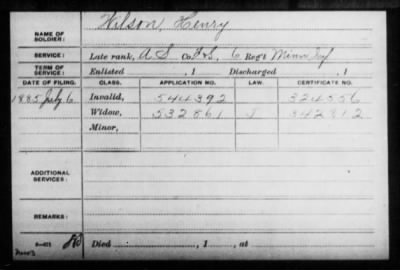 Wilson, Henry
NAME OF SOLDIER:
SERVICE: Late rank, A. S. Co. F&S, 6 Reg't Minn Inf
TERM OF SERVICE: Enlisted , 1 Discharged , 1
DATE OF FILING. CLASS. APPLICATION NO. LAW. CERTIFICATE NO.
1885 July 6 Invalid, 544392 324556
Widow, 532861 342812
Minor,
ADDITIONAL SERVICES:
REMARKS:
Died , 1 , at